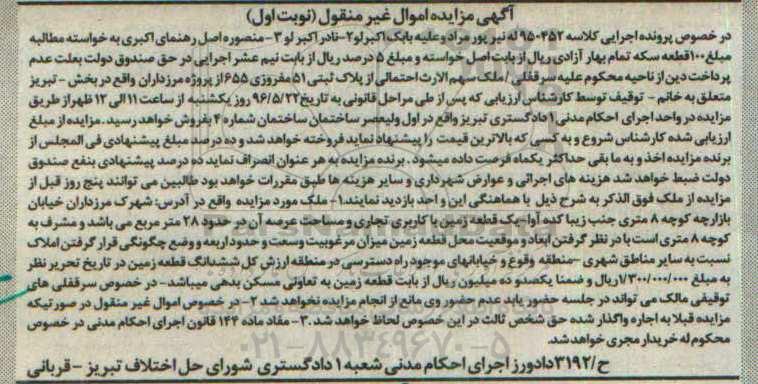 آگهی مزایده اموال غیر منقول (نوبت اول)
در خصوص پرونده اجرایی کلاسه ۹۵۰۴۵۲ له نیر پور مراد و علیه بابک اکبرلو ۲-نادر اکبر لو ۳ - منصوره اصل رهنمای اکبری به خواسته مطالبه
مبلغ ۱۰۰ قطعه سکه تمام بهار آزادی ریال از بابت اصل خواسته و مبلغ ۵ درصد ریال از بابت نیم عشر اجرایی در حق صندوق دولت بعلت عدم
پرداخت دین از ناحیه محکوم علیه سرقفلی / ملک سهم الارث احتمالی از پلاک ثبتی ۵۱ مفروزی ۶۵۵ از پروژه مرزداران واقع در بخش - تبریز
متعلق به خانم - توقیف توسط کارشناس ارزیابی که پس از طی مراحل قانونی به تاریخ ۹۶/۵/۲۲ روز یکشنبه از ساعت ۱۱ الی ۱۲ ظهر از طریق
مزایده در واحد اجرای احکام مدنی ۱ دادگستری تبریز واقع در اول ولیعصر ساختمان ساختمان شماره ۴ بفروش خواهد رسید. مزایده از مبلغ
ارزیابی شده کارشناس شروع و به کسی که بالاترین قیمت را پیشنهاد نماید فروخته خواهد شد و ده درصد مبلغ پیشنهادی فی المجلس از
برنده مزایده اخذ و به ما بقی حداکثر یکماه فرصت داده میشود. برنده مزایده به هر عنوان انصراف نماید ده درصد پیشنهادی بنفع صندوق
دولت ضبط خواهد شد هزینه های اجرائی و عوارض شهرداری و سایر هزینه ها طبق مقررات خواهد بود طالبین می توانند پنج روز قبل از
مزایده از ملک فوق الذکر به شرح ذیل با هماهنگی این واحد بازدید نمایند.۱- ملک مورد مزایده واقع در آدرس: شهرک مرزداران خیابان
بازارچه کوچه ۸ متری جنب زیبا کده آوا-یک قطعه زمین با کاربری تجاری و مساحت عرصه آن در حدود ۲۸ متر مربع می باشد و مشرف به
کوچه ۸ متری است با در نظر گرفتن ابعاد و موقعیت محل قطعه زمین میزان مرغوبیت وسعت و حدود اربعه و وضع چگونگی قرار گرفتن املاک
نسبت به سایر مناطق شهری -منطقه وقوع و خیابانهای موجود راه دسترسی در منطقه ارزش کل ششدانگ قطعه زمین در تاریخ تحریر نظر
به مبلغ ۱/۳۰۰/۰۰۰/۰۰۰ ریال و ضمنا یکصد و ده میلیون ریال از بابت قطعه زمین به تعاونی مسکن بدهی میباشد- در خصوص سرقفلی های
توقیفی مالک می تواند در جلسه حضور یابد عدم حضور وی مانع از انجام مزایده نخواهد شد ۲- در خصوص اموال غیر منقول در صورتیکه
مزایده قبلا به اجاره واگذار شده حق شخص ثالث در این خصوص لحاظ خواهد شد. ۳- مفاد ماده ۱۴۴ قانون اجرای احکام مدنی در خصوص
محکوم له خریدار مجری خواهد شد.
ح/۳۱۹۲ دادورز اجرای احکام مدنی شعبه ۱ دادگستری شورای حل اختلاف تبریز - قربانی
۰۲۱-۸۸۳۴۹۶۷۰-۵